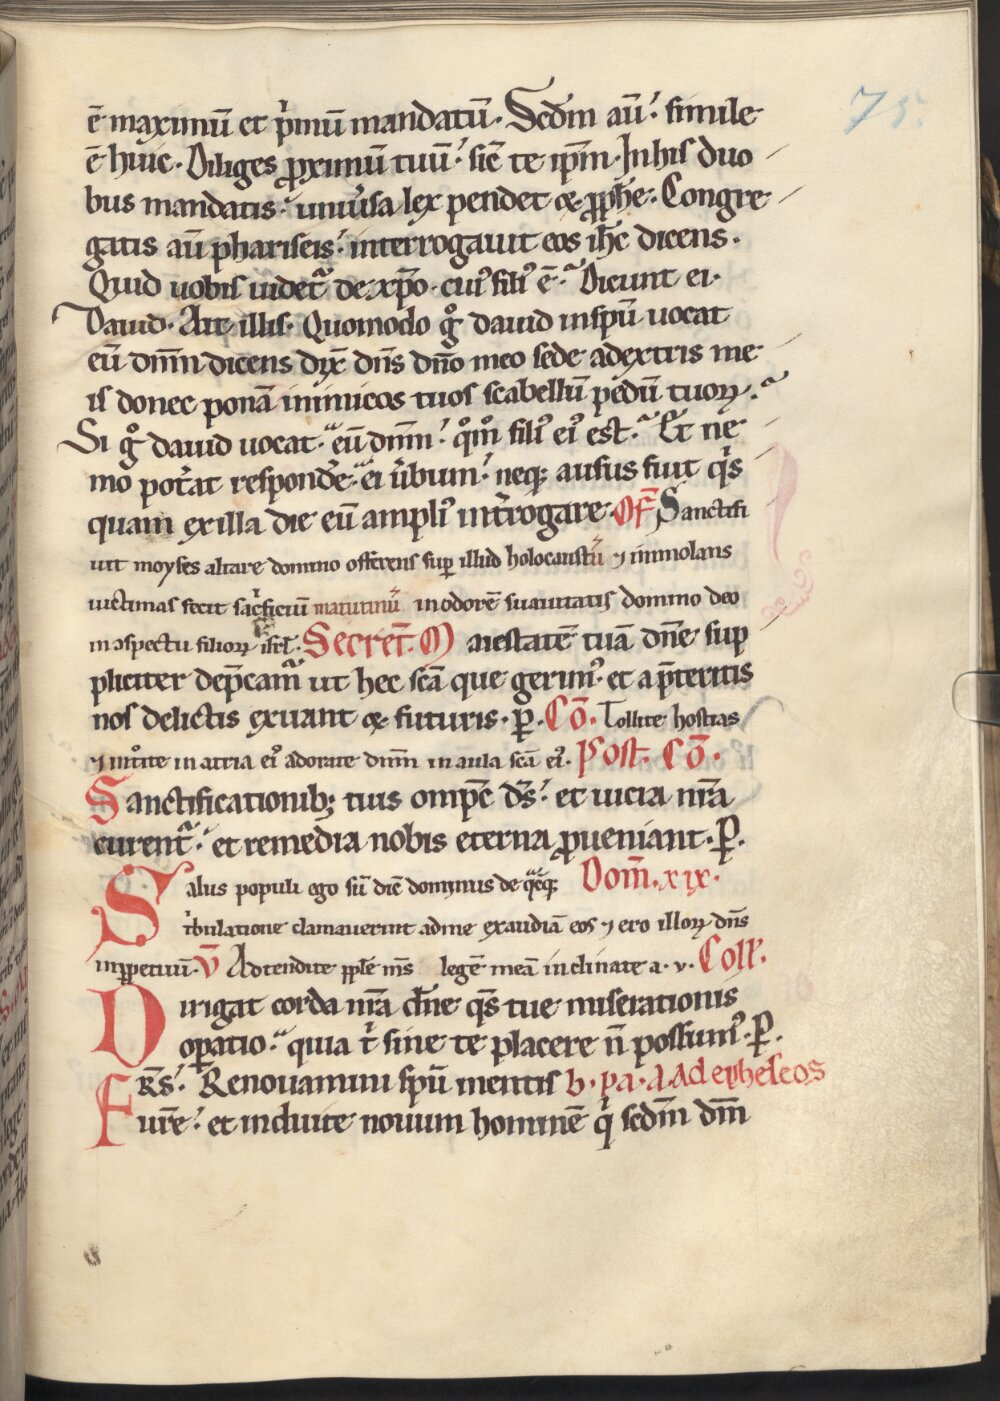 75.
ē maximū et p̍mū mandatū. Sedm̄ aū simile
ē huic. Diliges ꝓximū tuū sic̄ te ip̄m. In his duo
bus mandatis uniu̍sa lex pendet & ꝓph̄e. Congre
gatis aū phariseis interrogauit eos ih̄c dicens.
Quid uobis uidet᷑ de xp̄o. cuiꝰ filiꝰ ē. Dicunt ei.
Dauid. Ait illis. Quomodo g̊ dauid in sp̄u uocat
eū dn̄m dicens dix̄ dn̄s dn̄o meo sede adextris me
is donec ponā inimicos tuos scabellū pedū tuoꝝ.
Si g̊ dauid uocat eū dn̄m qm̊ filiꝰ eiꝰ est. Et ne
mo pot̍at respond̍e ei u̍bum neq; ausus fuit q̍s
quam ex illa die eū ampliꝰ int̍rogare Of̄ Sanctifi
uit moyses altare domino offerens suꝑ illud holocaustū ⁊ immolans
uictimas fecit sac̍ficiū matutinū in odorē suauitatis domino deo
in ɔspectu filioꝝ isr̄l. Secret̄. Maiestatē tuā dn̄e sup
pliciter dep̄cam᷑ ut hec sc̄a que gerimꝰ et a p̄teritis
nos delictis exuant & futuris. ꝑ. Cō. Tollite hostias
⁊ int̊ite in atria eiꝰ adorate dn̄m in aula sc̄a eiꝰ. Post. cō.
Sanctificationib; tuis omp̄c ds̄ et uicia nr̄a
curent᷑ et remedia nobis eterna ꝓueniant. ꝑ.
Salus populi ego sū dic̄ dominus de q̄cq; Dom̄. xix.
t̍bulatione clamauerint ad me exaudiā eos ⁊ ero illoꝝ dn̄s
in ꝑpetuū. v̄ Adtendite pp̄le m̄s legē meā inclinate a. v. Coll.
Dirigat corda nr̄a dn̄e qs̄ tue miserationis
oꝑatio quia t̍ sine te placere n̄ possumꝰ. ꝑ.
Fr̄s. Renouamini sp̄u mentis b. pa. a. Ad epheseos
ur̄e et induite nouum hominē q̍ sedm̄ dm̄